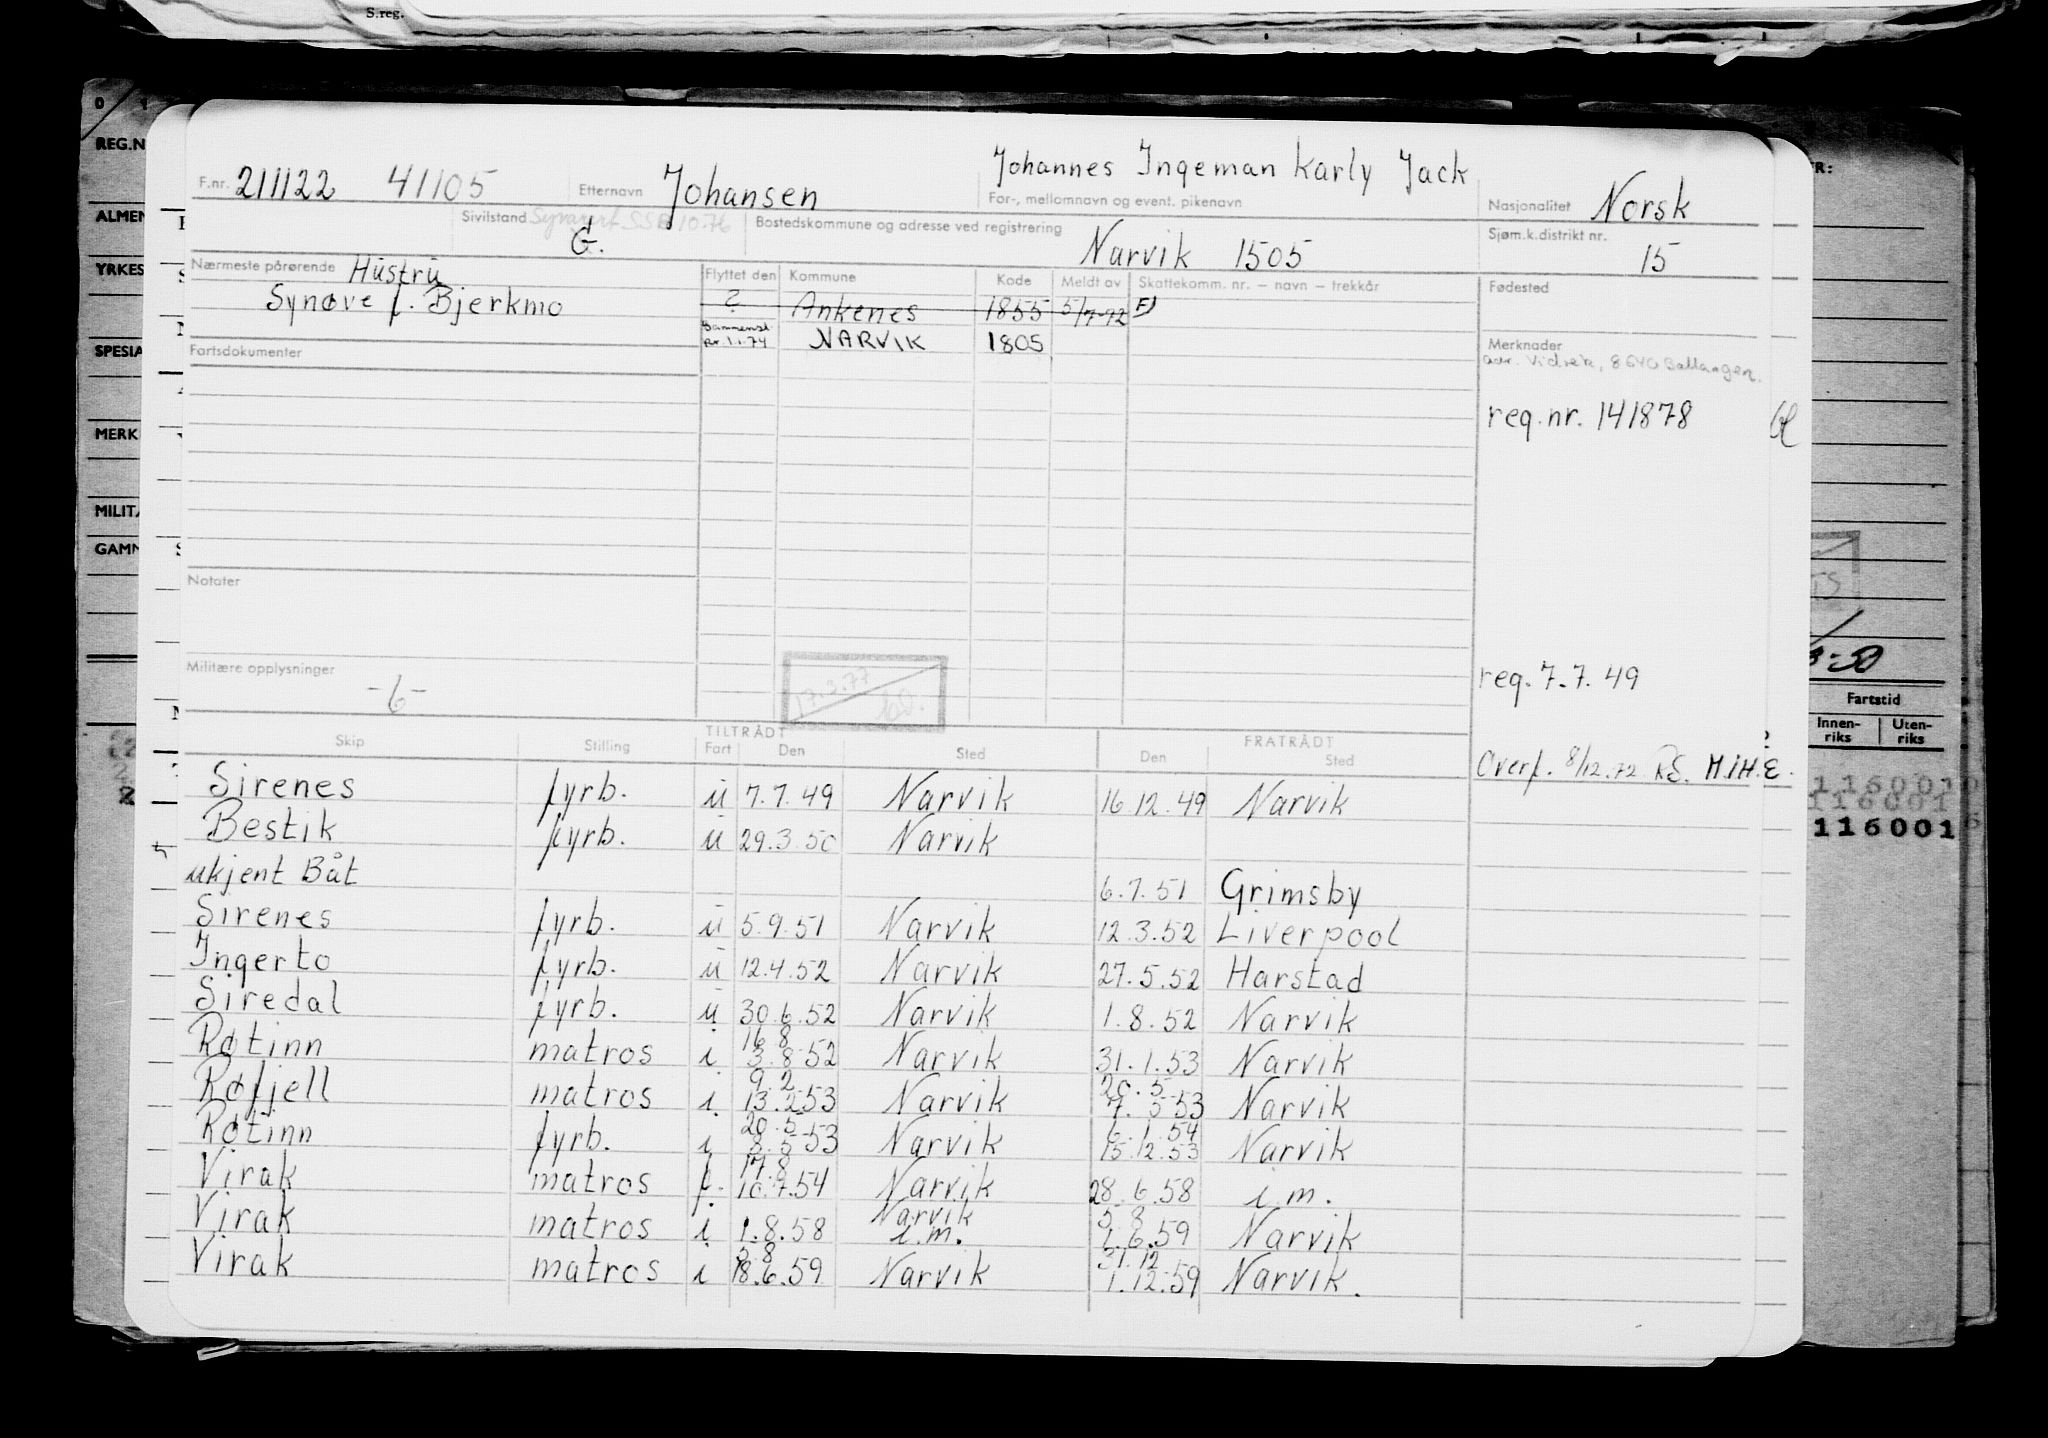 S.reg.
REG.N
F.nr. 211122 41105 Etternavn Johansen Johannes Ingeman Karly Jack
For-, mellomnavn og event. pikenavn
Nasjonalitet Norsk
ALMEN
Sivilstand G. SSB 10.76
Bostedskommune og adresse ved registrering Narvik 1505
Sjøm.k.distrikt nr. 15
YRKES
Nærmeste pårørende Hüstrü
Synøve f. Bjerkmo
Flyttet den Kommune Kode Meldt av Skattekomm. nr. – navn – trekkår
Fødested
? Ankenes 1855 5/7-72
Sammensl. pr. 1.1.74 NARVIK 1805
SPESIA
Fartsdokumenter
Merknader
adr. Vidrek, 8540 Ballangen.
reg.nr. 141878
MERK
MILITÆ
GAMM
Notater
Militære opplysninger
-6-
17.3.77
reg. 7.7.49
3-50
Fartstid
Innen-riks Uten-riks
Skip Stilling TILTRÅDT Fart Den Sted FRATRÅDT Den Sted
Overf. 8/12.72 RS. M.I.H.E.
Sirenes fyrb. ü 7.7.49 Narvik 16.12.49 Narvik
Bestik fyrb. ü 29.3.50 Narvik
1160010
116001
116001
ukjent Båt 6.7.51 Grimsby
Sirenes fyrb. ü 5.9.51 Narvik 12.3.52 Liverpool
Ingerto fyrb. ü 12.4.52 Narvik 27.5.52 Harstad
Siredal fyrb. ü 30.6.52 Narvik 1.8.52 Narvik
16.8
Røtinn matros i 3.8.52 Narvik 31.1.53 Narvik
9.2 20.5
Røfjell matros i 13.2.53 Narvik 7.5.53 Narvik
20.5 6.1.54
Røtinn fyrb. i 8.5.53 Narvik 15.12.53 Narvik
17.8
Virak matros f. 10.7.54 Narvik 28.6.58 i.m.
Narvik 5.8
Virak matros i 1.8.58 i.m. 1.6.59 Narvik
5.8 31.12
Virak matros i 18.6.59 Narvik 1.12.59 Narvik.